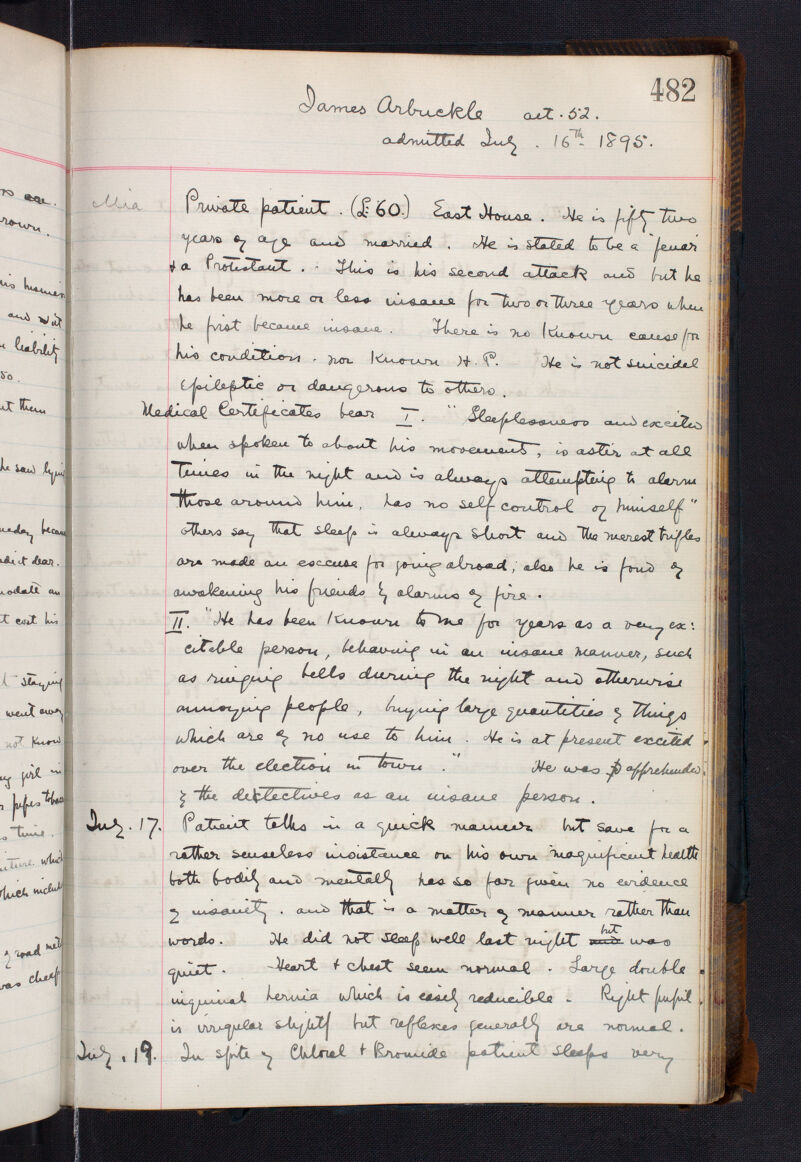 482
James Arbuckle aet. 52.
admitted July. 16th 1895.
Mia
Private patient. (£60.) East House. He is fifty two
years of age and married. He is stated to be a 'feuar'
& a Protestant. This is his second attack and but he
has been more or less insane for two or three years when
he first became insane. There is no known cause for
his condition. nor known H.P. He is not suicidal
epileptic or dangerous to others.
Medical Certificates bear I. "Sleeplessness and excited
when spoken to about his movement, is astir at all
times in the night and is always attempting to alarm
those around him, has no self control of himself"
others say that sleep is always short and the merest trifles
are made an excuse for going abroad; also he is fond of
awakening his friends by alarms of fire.
II. "He has been known to me for years as a very ex:
citable person, behaving in an insane manner, such
as ringing bells during the night and otherwise
annoying people, buying large quantities of things
which are of no use to him. He is at present excited
over the election in town." He was apprehended
by the detectives as an insane person.
July. 17. Patient talks in a quick manner but save for a
rather senseless insistance on his own magnificent health
both bodily and mentally has so far given no evidence
of insanity. and that is a matter of manner rather than
words. He did not sleep well last night and but was
quiet. Heart & chest seem normal. Large double
inguinal hernia which is easily reducible. Right pupil
is irregular slightly but reflexes generally are normal.
July. 19. In spite of Chloral & Bromide patient sleeps very